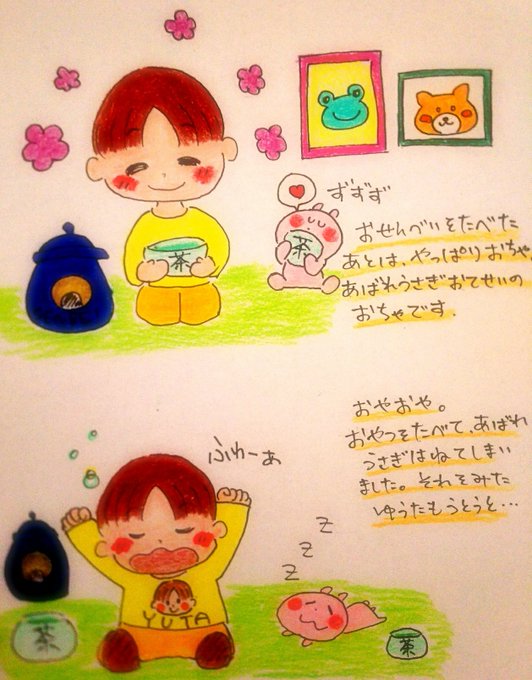 ずずず
茶
茶
おせんべいをたべた
あとは、やっぱりおちゃ。
あばれうさぎおてせいの
おちゃです。
おやおや。
おやつをたべて、あばれ
うさぎはねてしまい
ました。それをみた
ゆうたもうとうと…
ふわーぁ
Z
Z
Z
YUTA
茶
茶